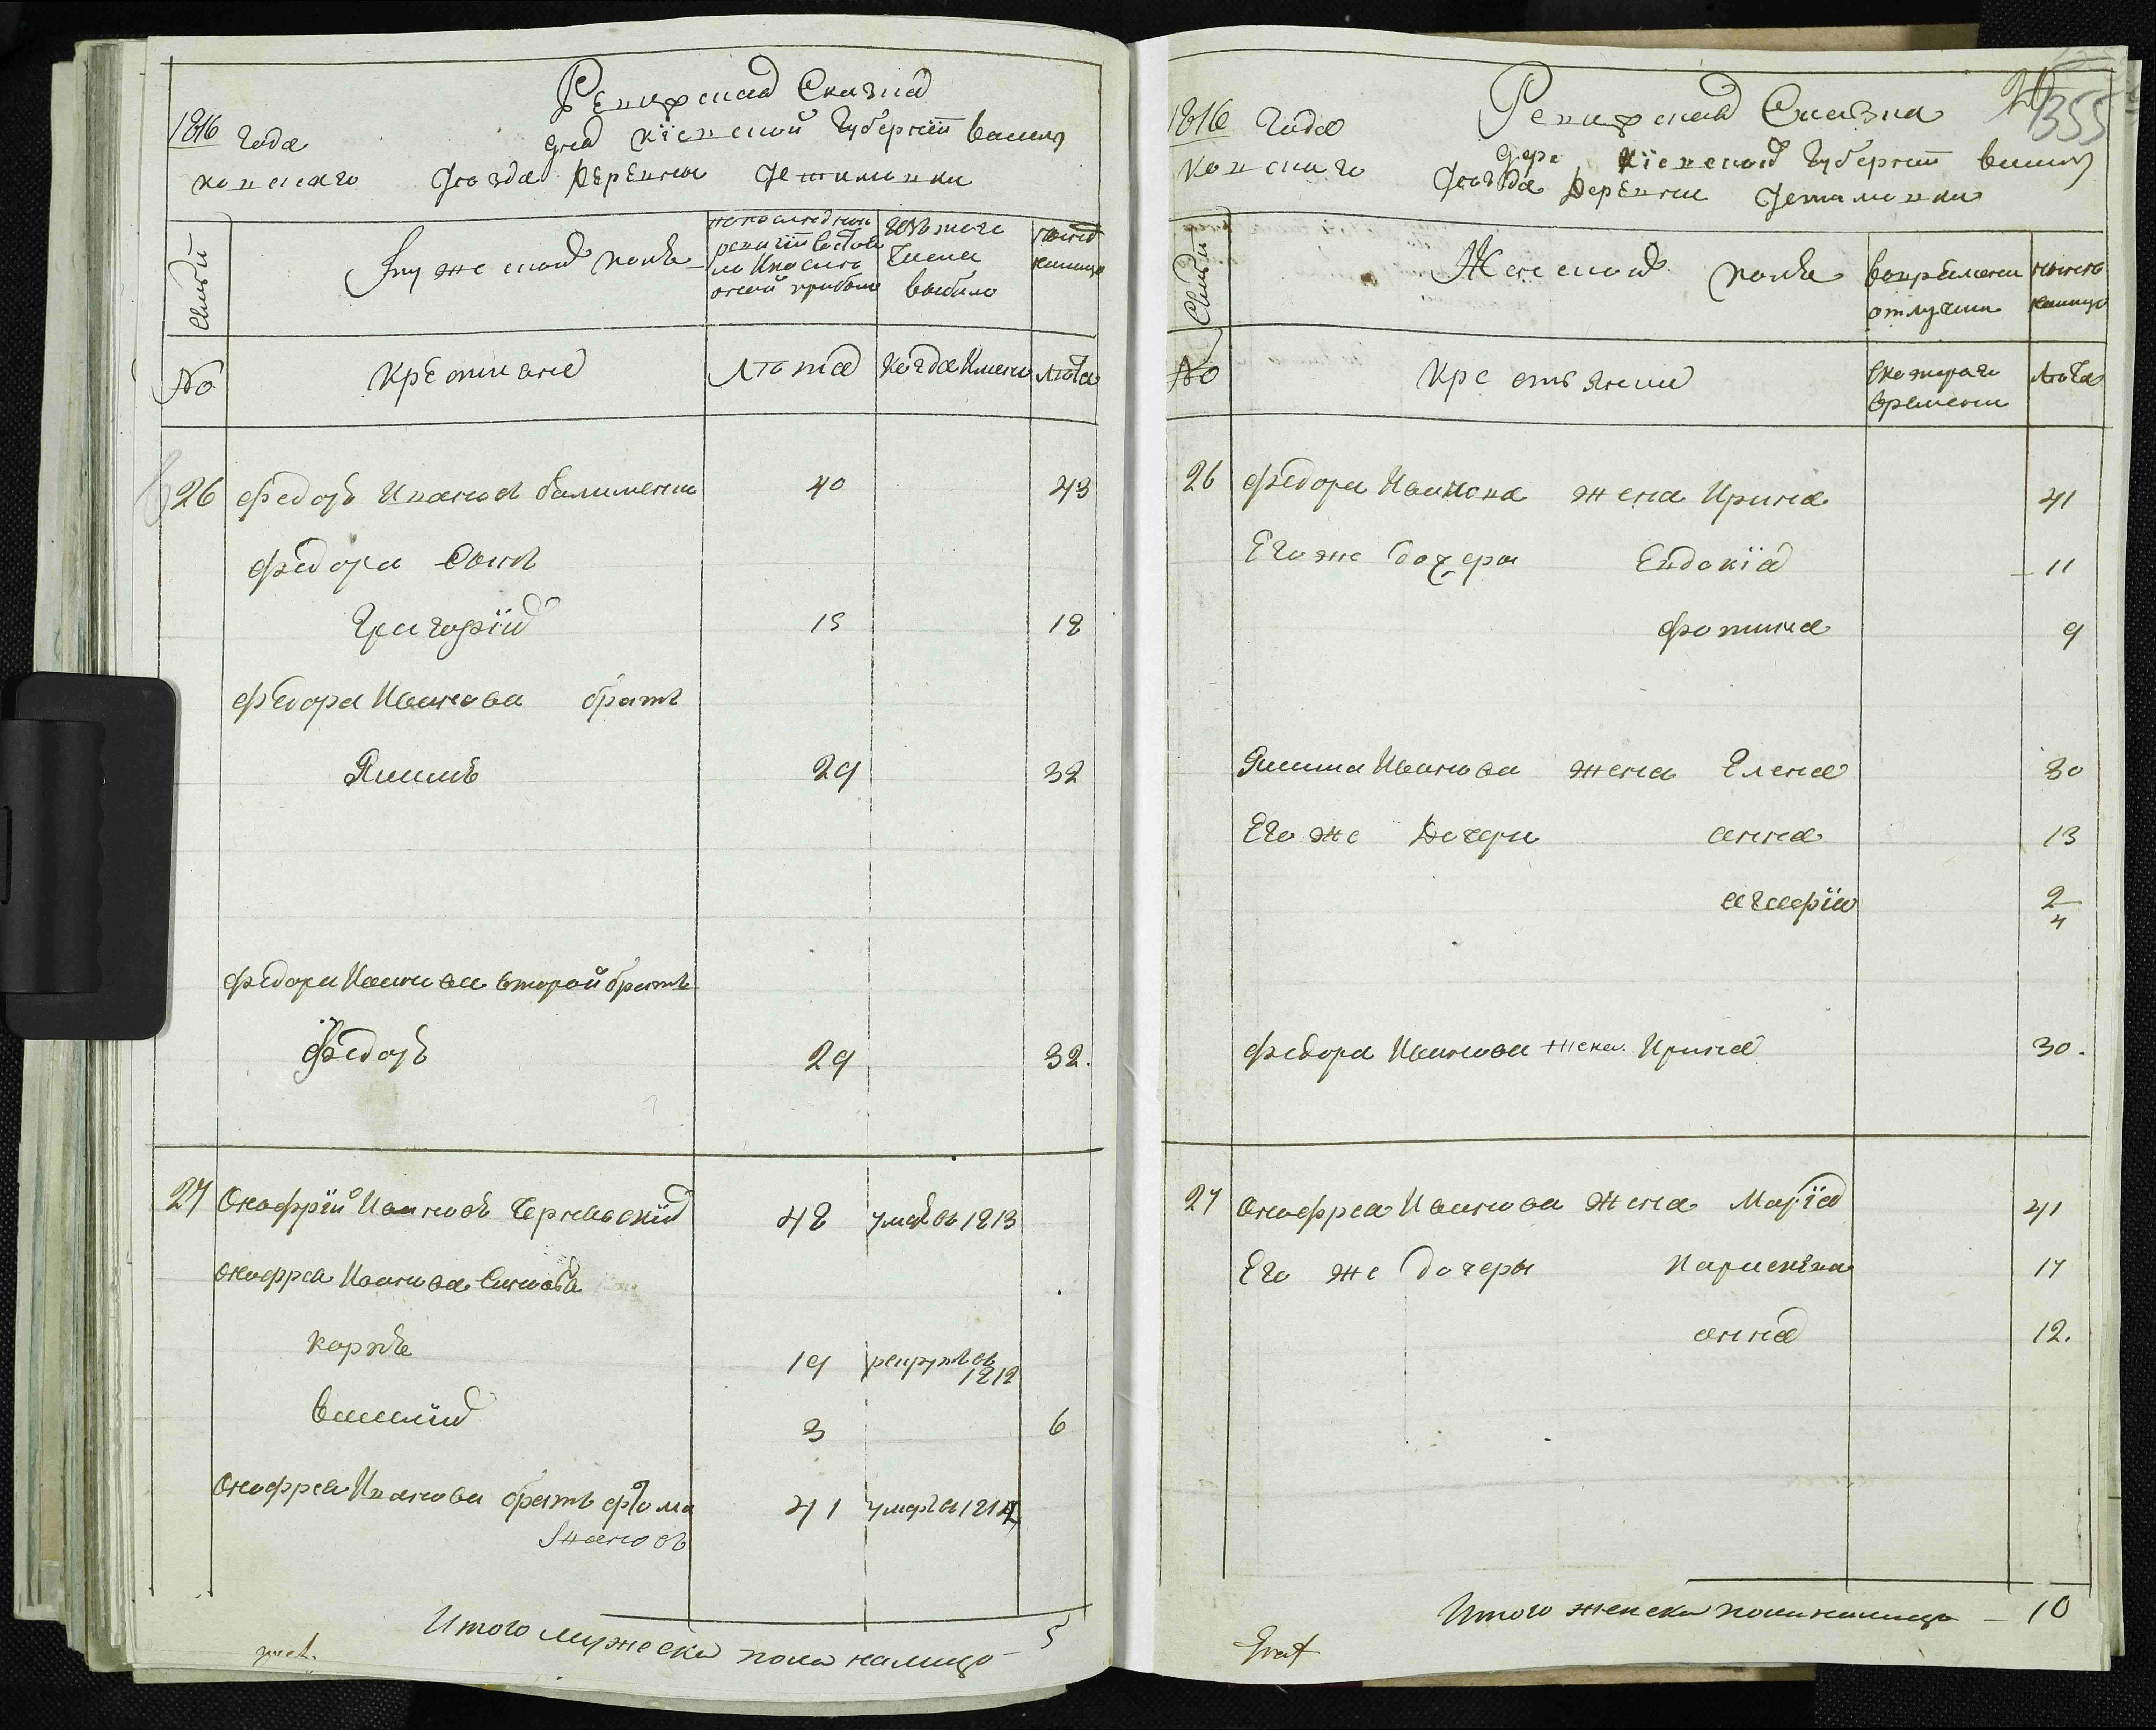 Ревизская Сказка
1816 года дня Кіевской Губерніи василь
ковскаго уезда деревни Устимовки
Семьи
Мужеской полъ
по последней
ревизіи состоя
ло и после
оной прибыло
изъ того
числа
выбыло
ныне
налицо
№
Крестьяне
Лета
Когда Именно
Лета
26 Федоръ Ивановъ 40 43
Федора Сынъ
Григорій 15 18
Федора Иванова братъ
Якимъ 29 32
Федора Иванова второй братъ
Федоръ 29 32.
27 Онофрій Ивановъ Чернавскій 48 умре въ 1813
Онофрея Иванова Сыновья
Карпъ 19 рекрутъ въ
1812
Василій 3 6
Онофрея Иванова братъ Фома 41 умре въ 1814
Ивановъ
Итого мужеска пола налицо – 5
355
Ревизская Сказка
1816 Года Кіевской Губерніи василь
ковскаго уезда деревни Устимовки
Семьи
Женской полъ
во временной
отлучки
ныне
налицо
№
Крестьянки
Съ которого
времени
Лета
26 Федора Иванова жена Ирина 41
Его же дочеры Евдокія 11
Фотина 9
Якима Иванова жена Елена 30
Его же Дочери анна 13
агафія 2/4
Федора Иванова жена Ирина 30.
27 Онофрея Иванова жена Марія 41
Его же дочеры Параскева 17
анна 12.
Итого женска пола налицо – 10